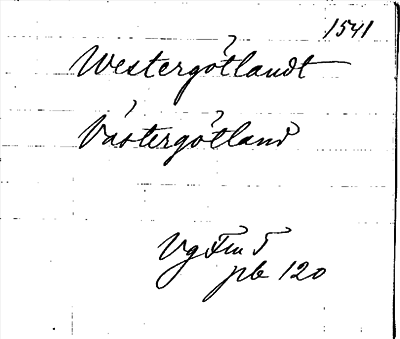 1541
Westergötlandt
Västergötland
Vg Fm 5
pb 120